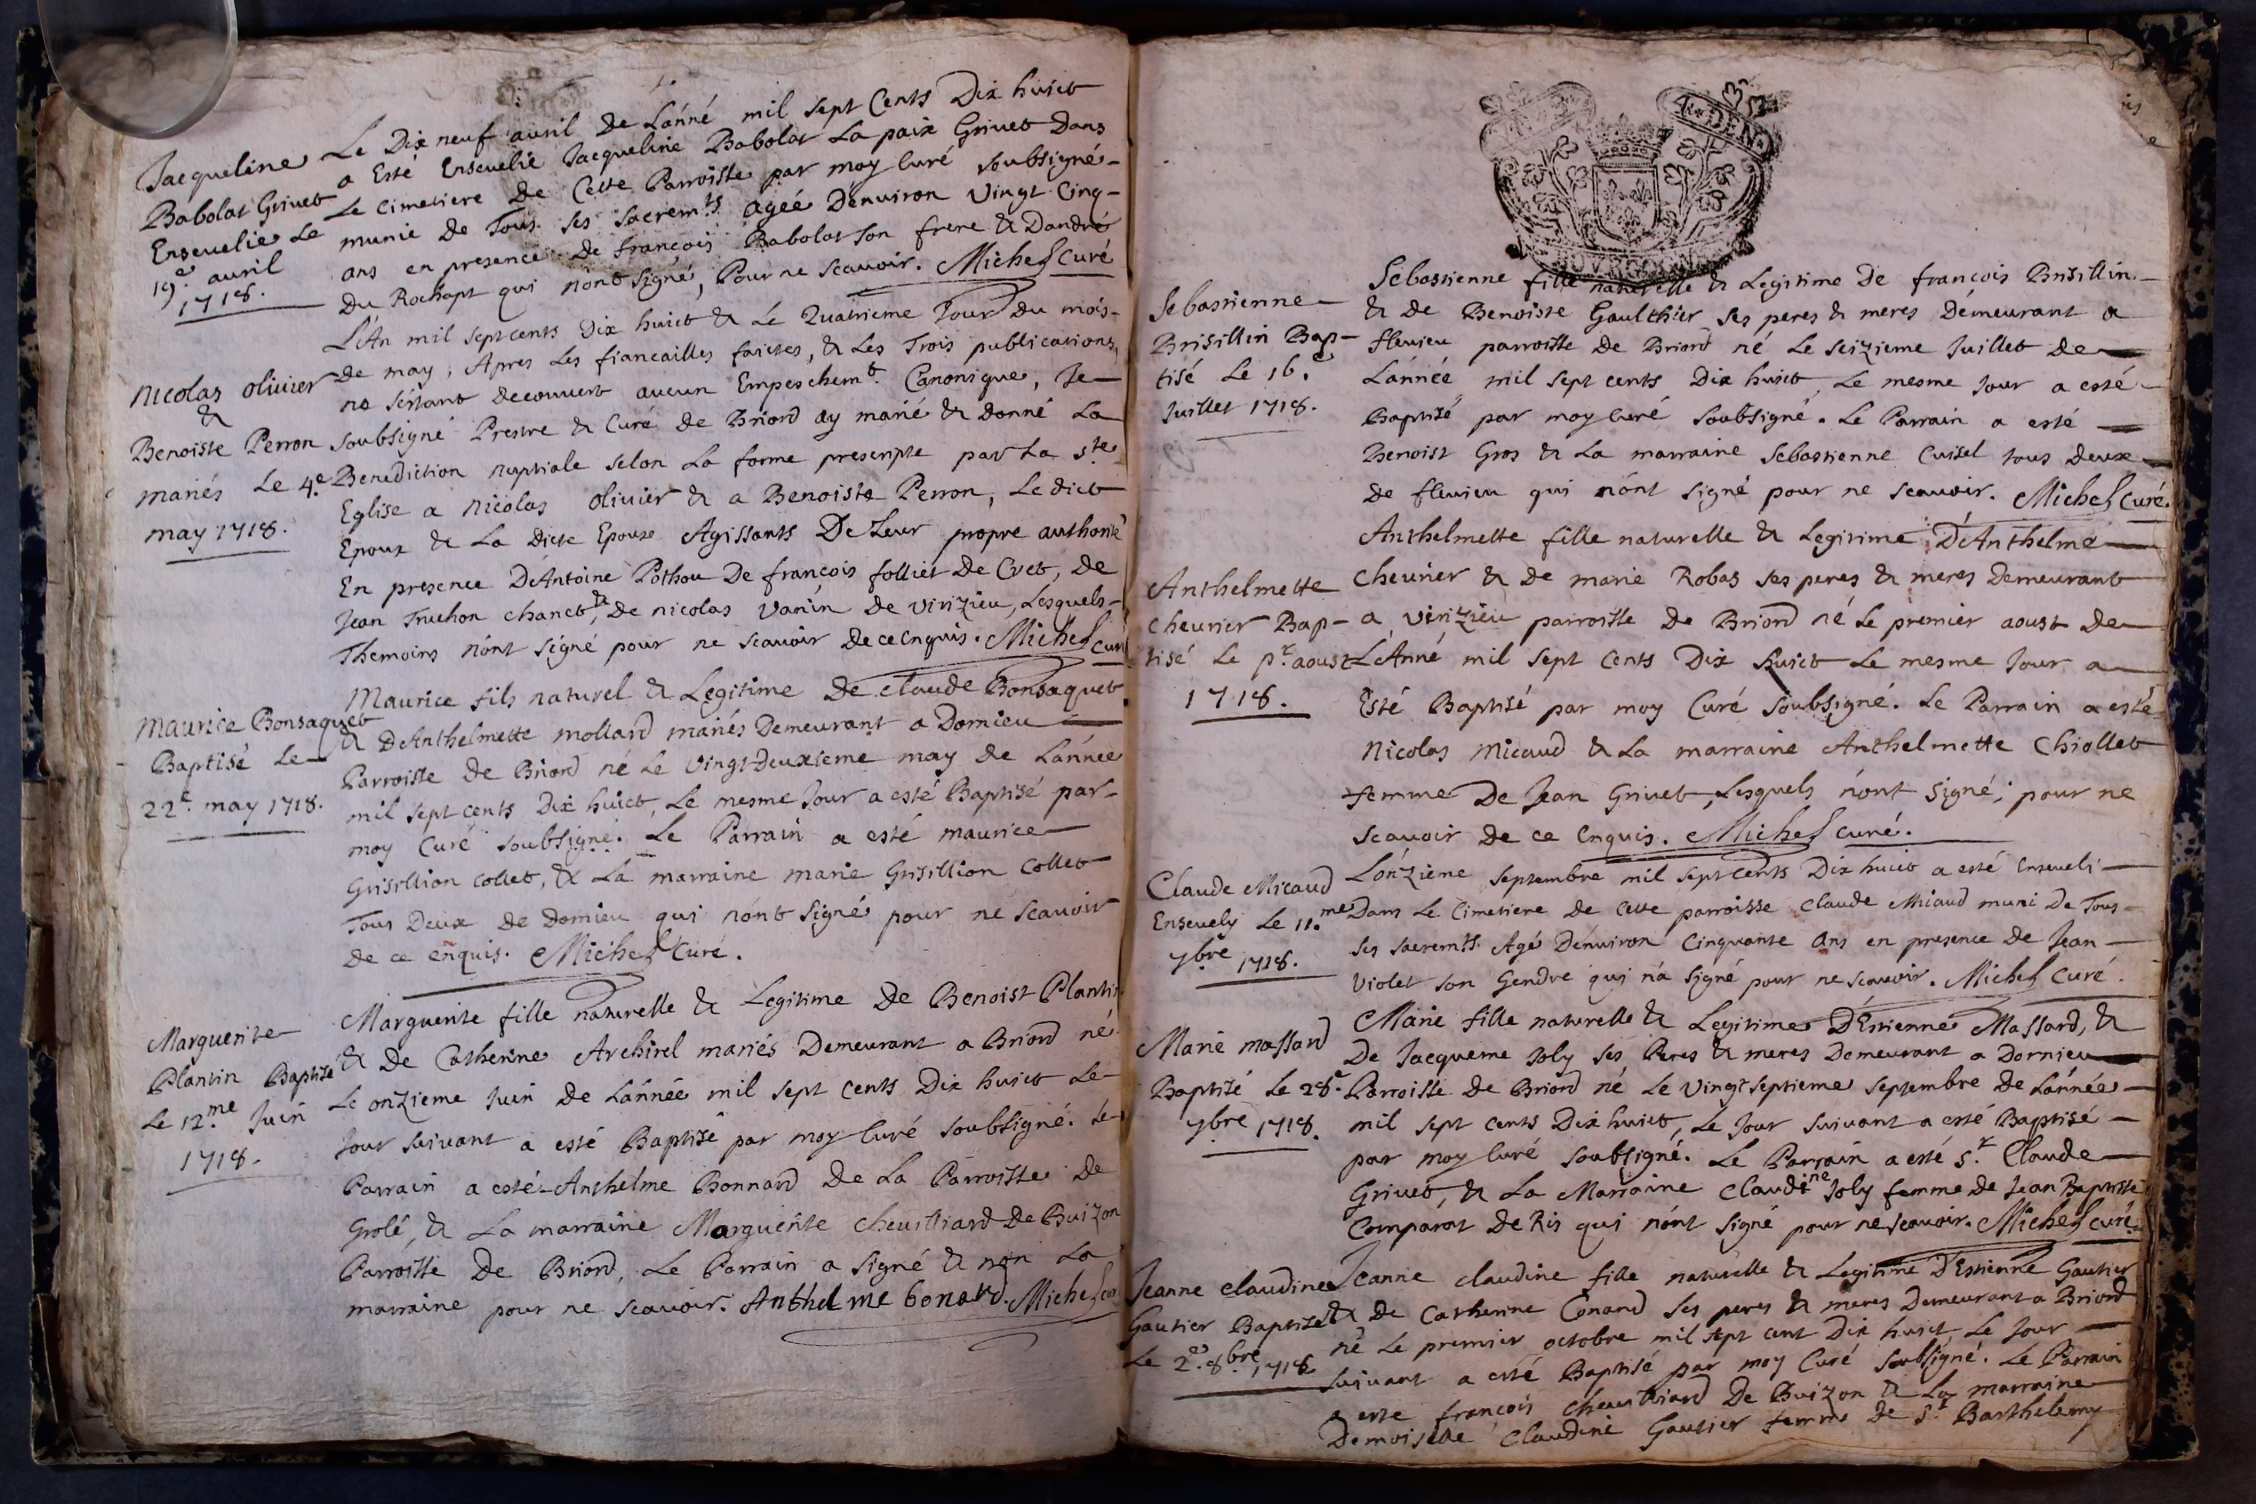 Jacqueline
Babolat Grivet
Ensevelie Le
19.e avril
1718.
Le Dix neuf avril de Lánné mil sept Cents Dix huict
a Esté Ensevelie Jacqueline Babolat La paix Grivet Dans
Le Cimetiere de Cette Parroisse par moy Curé soubsigné
munie de Tous ses sacremts. agéé Dénviron Vingt Cinq
ans en presence de françois Babolat son frere & Dandré
Du Rochapt qui nónt signé, Pour ne scavoir. Michel Curé
Nicolas olivier
&
Benoiste Perron
mariés Le 4.e
may 1718.
LÁn mil septcents Dix huict & Lé Quatrieme Jour Du mois
de may, Apres Les fiancailles faictes, & Les Trois publications,
ne séstant decouvert aucun Empeschemt. Canonique, Je
soubsigné Prestre & Curé de Briord ay marié & donné La
Benediction nuptiale selon La forme prescripte par La ste.
Eglise a Nicolas olivier & a Benoiste Perron, Le dict
Epoux & La dicte Epouse Agissants De Leur propre authorité
En presence DeAntoine Pothou De françois folliet de Cvet, de
Jean Truchon chanet, & de nicolas Vanin de virizieu, Lesquels
Themoins nónt signé pour ne scavoir de ce Enquis. Michel Curé
Maurice Bonsaquet
Baptisé Le
22.e may 1718.
Maurice fils naturel & Legitime de Claude Bonsaquet
& DeAnthelmette mollard mariés Demeurant a Dornieu
Parroisse de Briord né Le Vingt Deuxieme may de Lánnée
mil sept cents Dix huict, Le mesme Jour a esté Baptisé par
moy Curé soubsigné. Le Parrain a esté maurice
Grisillion collet, & La marraine marie Grisillion Collet
Tous Deux de Dornieu qui nónt signé pour ne scavoir
de ce enquis. Michel Curé.
Marguerite
Plantin Baptisé
Le 12.me Juin
1718.
Marguerite fille naturelle & Legitime de Benoist Plantin
& de Catherine Archirel mariés Demeurant a Briord né
Le onzieme Juin de Lánnée mil sept cents Dix huict Le
Jour suivant a esté Baptisé par moy Curé soubsigné. Le
Parrain a esté Anthelme Bonnard de La Parroisse de
Grolé, & La marraine Marguerite Cheuilliard De Buizon
Parroisse De Briord, Le Parrain a signé & non La
marraine pour ne scavoir. Anthelme bonard. Michel Curé
Sebastienne
Brisillin Bap-
tisé Le 16.e
Juillet 1718.
Sebastienne fille naturelle & Legitime De françois Brisillin
& de Benoiste Gaulthier ses peres & meres Démeurant a
flevieu parroisse de Briord né Le seizieme Juillet de
Lánnée mil sept cents Dix huict, Le mesme Jour a esté
Baptisé par moy Curé soubsigné. Le Parrain a esté
Benoist Gros & La marraine Sebastienne Cuisel tous deux
de flevieu qui nónt signé pour ne scavoir. Michel Curé.
Anthelmette
chevrier Bap-
tisé Le pr. aoust
1718.
Anthelmette fille naturelle & Legitime DÁnthelme
chevrier & de marie Robas ses peres & meres Demeurant
a Virizieu parroisse de Briord né Le premier aoust de
LÁnné mil sept cents Dix huict Le mesme Jour a
Esté Baptisé par moy Curé soubsigné. Le Parrain a esté
Nicolas Micaud & La marraine Anthelmette Chiollet
femme De Jean Grivet, Lesquels nónt signé, pour ne
scavoir de ce Enquis. Michel curé.
Claude Micaud
Ensevely Le 11.me
7bre 1718.
Lónzieme septembre mil septcents Dix huict a esté Enseveli
Dans Le Cimetiere de Cette parroisse Claude Miaud muni De Tous
ses sacremts. Agé Dénviron Cinquante ans en presence de Jean
Violet son Gendre qui ná signé pour ne scavoir. Michel Curé.
Marie massard
Baptisé Le 28.e
7bre 1718.
Marie fille naturelle & Legitime DÉstienne Massard, &
De Jacqueme Joly ses Peres & meres Demeurant a Dornieu
Parroisse de Briord né Le vingt septieme septembre de Lánnée
mil sept cents Dix huict, Le Jour suivant a esté Baptisé
par moy Curé soubsigné. Le Parrain a esté sr. Claude
Grivet, & La Marraine Claudine Joly femme de Jean Baptiste
Comparat de Ris qui nónt signé pour ne scavoir. Michel curé.
Jeanne Claudine
Gautier Baptisé
Le 2.e 8bre 1718.
Jeanne claudine fille naturelle & Legitime DÉstienne Gautier
& de Catherine Conand ses peres & meres Demeurant a Briord
né Le premier octobre mil sept cent Dix huict, Le Jour
suivant a esté Baptisé par moy Curé soubsigné. Le Parrain
a este françois cheuilliard De Buizon & La marraine
Demoiselle Claudine Gautier femme de sr. Barthelemy